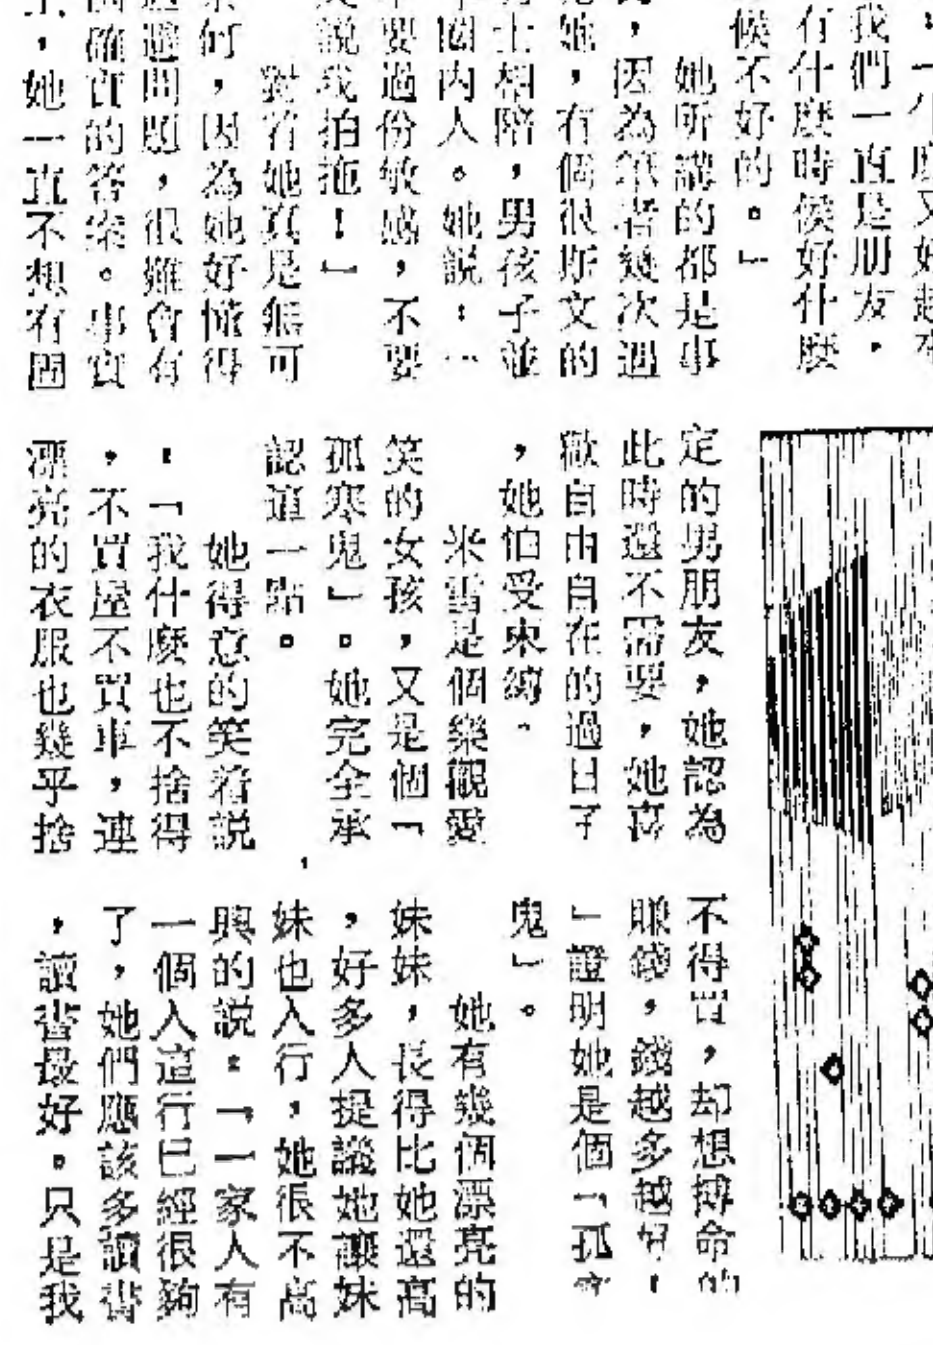 我們一直是朋友，
有什麼時候好什麼
候不好的。」
她所講的都是事
，因為筆者幾次遇
她，有個很斯文的
士相陪，男孩子並
圈內人。她說：「
要過份敏感，不要
說我拍拖！」
對着她真是無可
何，因為她好懂得
避問題，很難會有
確實的答案。事實
，她一直不想有固
定的男朋友，她認為
此時還不需要，她喜
歡自由自在的過日子
，她怕受束縛。
米雪是個樂觀愛
笑的女孩，又是個「
孤寒鬼」。她完全承
認這一點。
她得意的笑着説
：「我什麼也不捨得
，不買屋不買車，連
漂亮的衣服也幾乎捨
不得買，却想搏命的
賺錢，錢越多越好！
」證明她是個「孤寒
鬼」。
她有幾個漂亮的
妹妹，長得比她還高
，好多人提議她讓妹
妹也入行，她很不高
興的説：「一家人有
一個人這行已經很夠
了，她們應該多讀書
，讀書最好。只是我